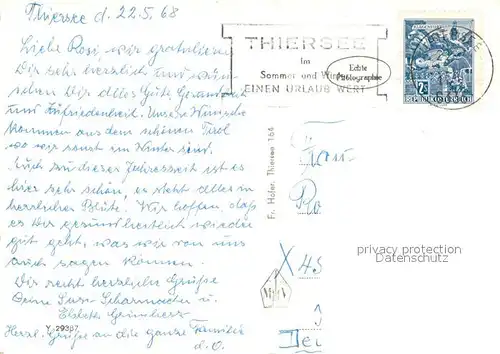 Thiersee d. 22.5.68
Liebe Rosi wir gratulieren
Dir sehr herzlich und wün-
schen Dir alles Gute Gesundheit
und Zufriedenheit. Unsere Wünsche
kommen aus dem schönen Tirol
wo wir sonst im Winter sind.
Auch zu dieser Jahreszeit ist es
hier sehr schön, es steht alles in
herrlicher Blüte! Wir hoffen, daß
es Dir gesundheitlich wieder
gut geht, was wir von uns
auch sagen können.
Dir recht herzliche Grüße
Deine Susi u.
Herzl. Grüße an die ganze Familie
d. O.
Y 29387
THIERSEE
im
Sommer und Winter
EINEN URLAUB WERT
Echte
Photographie
Fr. Hofer, Thiersee 164
2S
REPUBLIK ÖSTERREICH
Frau
Ro
X 45
privacy protection
copyright